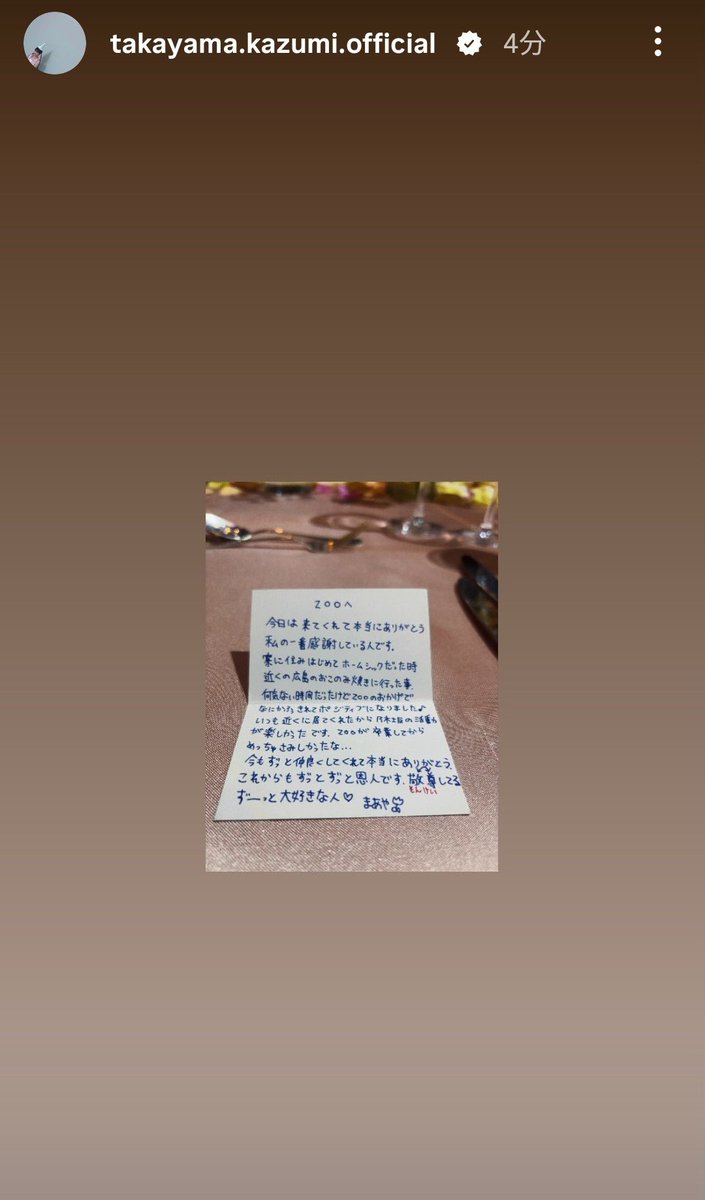 takayama.kazumi.official 4分
ZOOへ
今日は来てくれて本当にありがとう
私の一番感謝している人です。
寮に住みはじめてホームシックだった時
近くの広島のおこのみ焼きに行った事
何気ない時間だったけどZOOのおかげで
されてポジティブになりました♪
いつも近くに居てくれたから乃木坂の活動
が楽しかったです。ZOOが卒業してから
めっちゃさみしかったな...
今もずっと仲良くしてくれて本当にありがとう。
これからもずっとずっと恩人です。敬尊してる
そんけい
ずーっと大好きな人♡ まあや